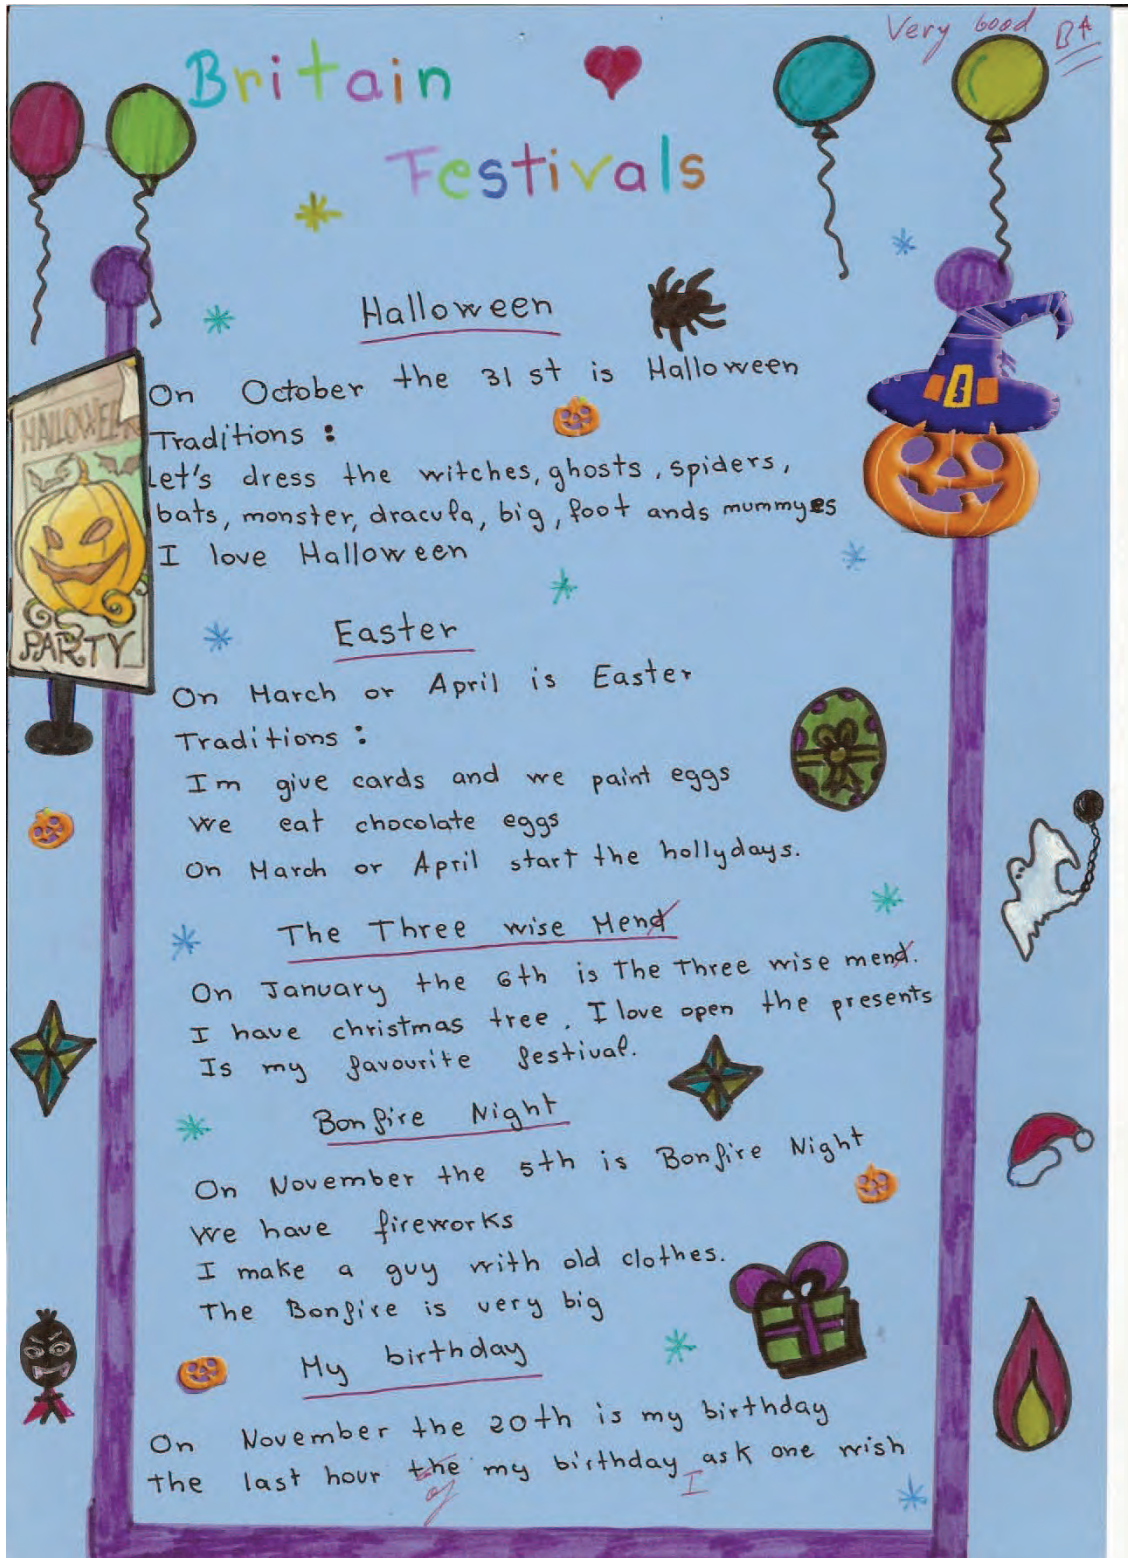 Very Good B+
Britain
Festivals
Halloween
On October the 31 st is Halloween
Traditions :
Let's dress the witches, ghosts, spiders,
bats, monster, dracula, big, foot ands mummyes
I love Halloween
HALLOWEEN
PARTY
Easter
On March or April is Easter
Traditions :
I'm give cards and we paint eggs
We eat chocolate eggs
On March or April start the hollydays.
The Three wise Mend
On January the 6th is The Three wise mend.
I have christmas tree. I love open the presents
Is my favourite festival.
Bonfire Night
On November the 5th is Bonfire Night
We have fireworks
I make a guy with old clothes.
The Bonfire is very big
My birthday
On November the 20th is my birthday
The last hour the my birthday ask one wish
of I